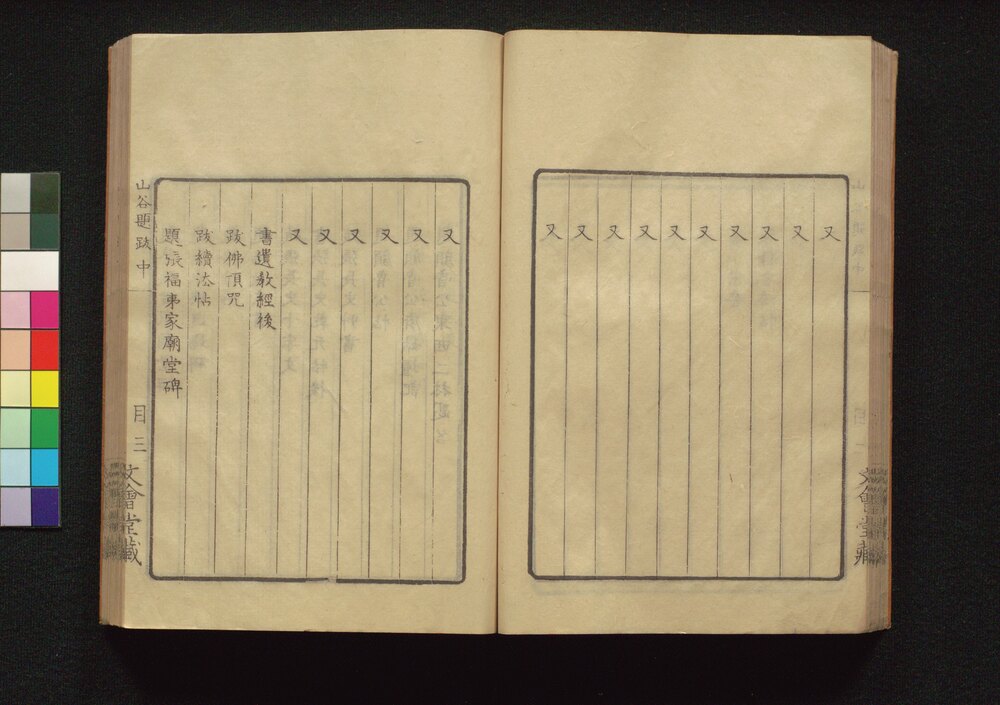 又
又
又
又
又
又
又
又
又
又
文會堂藏
又
又
又
又
又
又
書遺教經後
跋佛頂咒
跋續法帖
題張福夷家廟堂碑
山谷題跋中
目三
文會堂藏